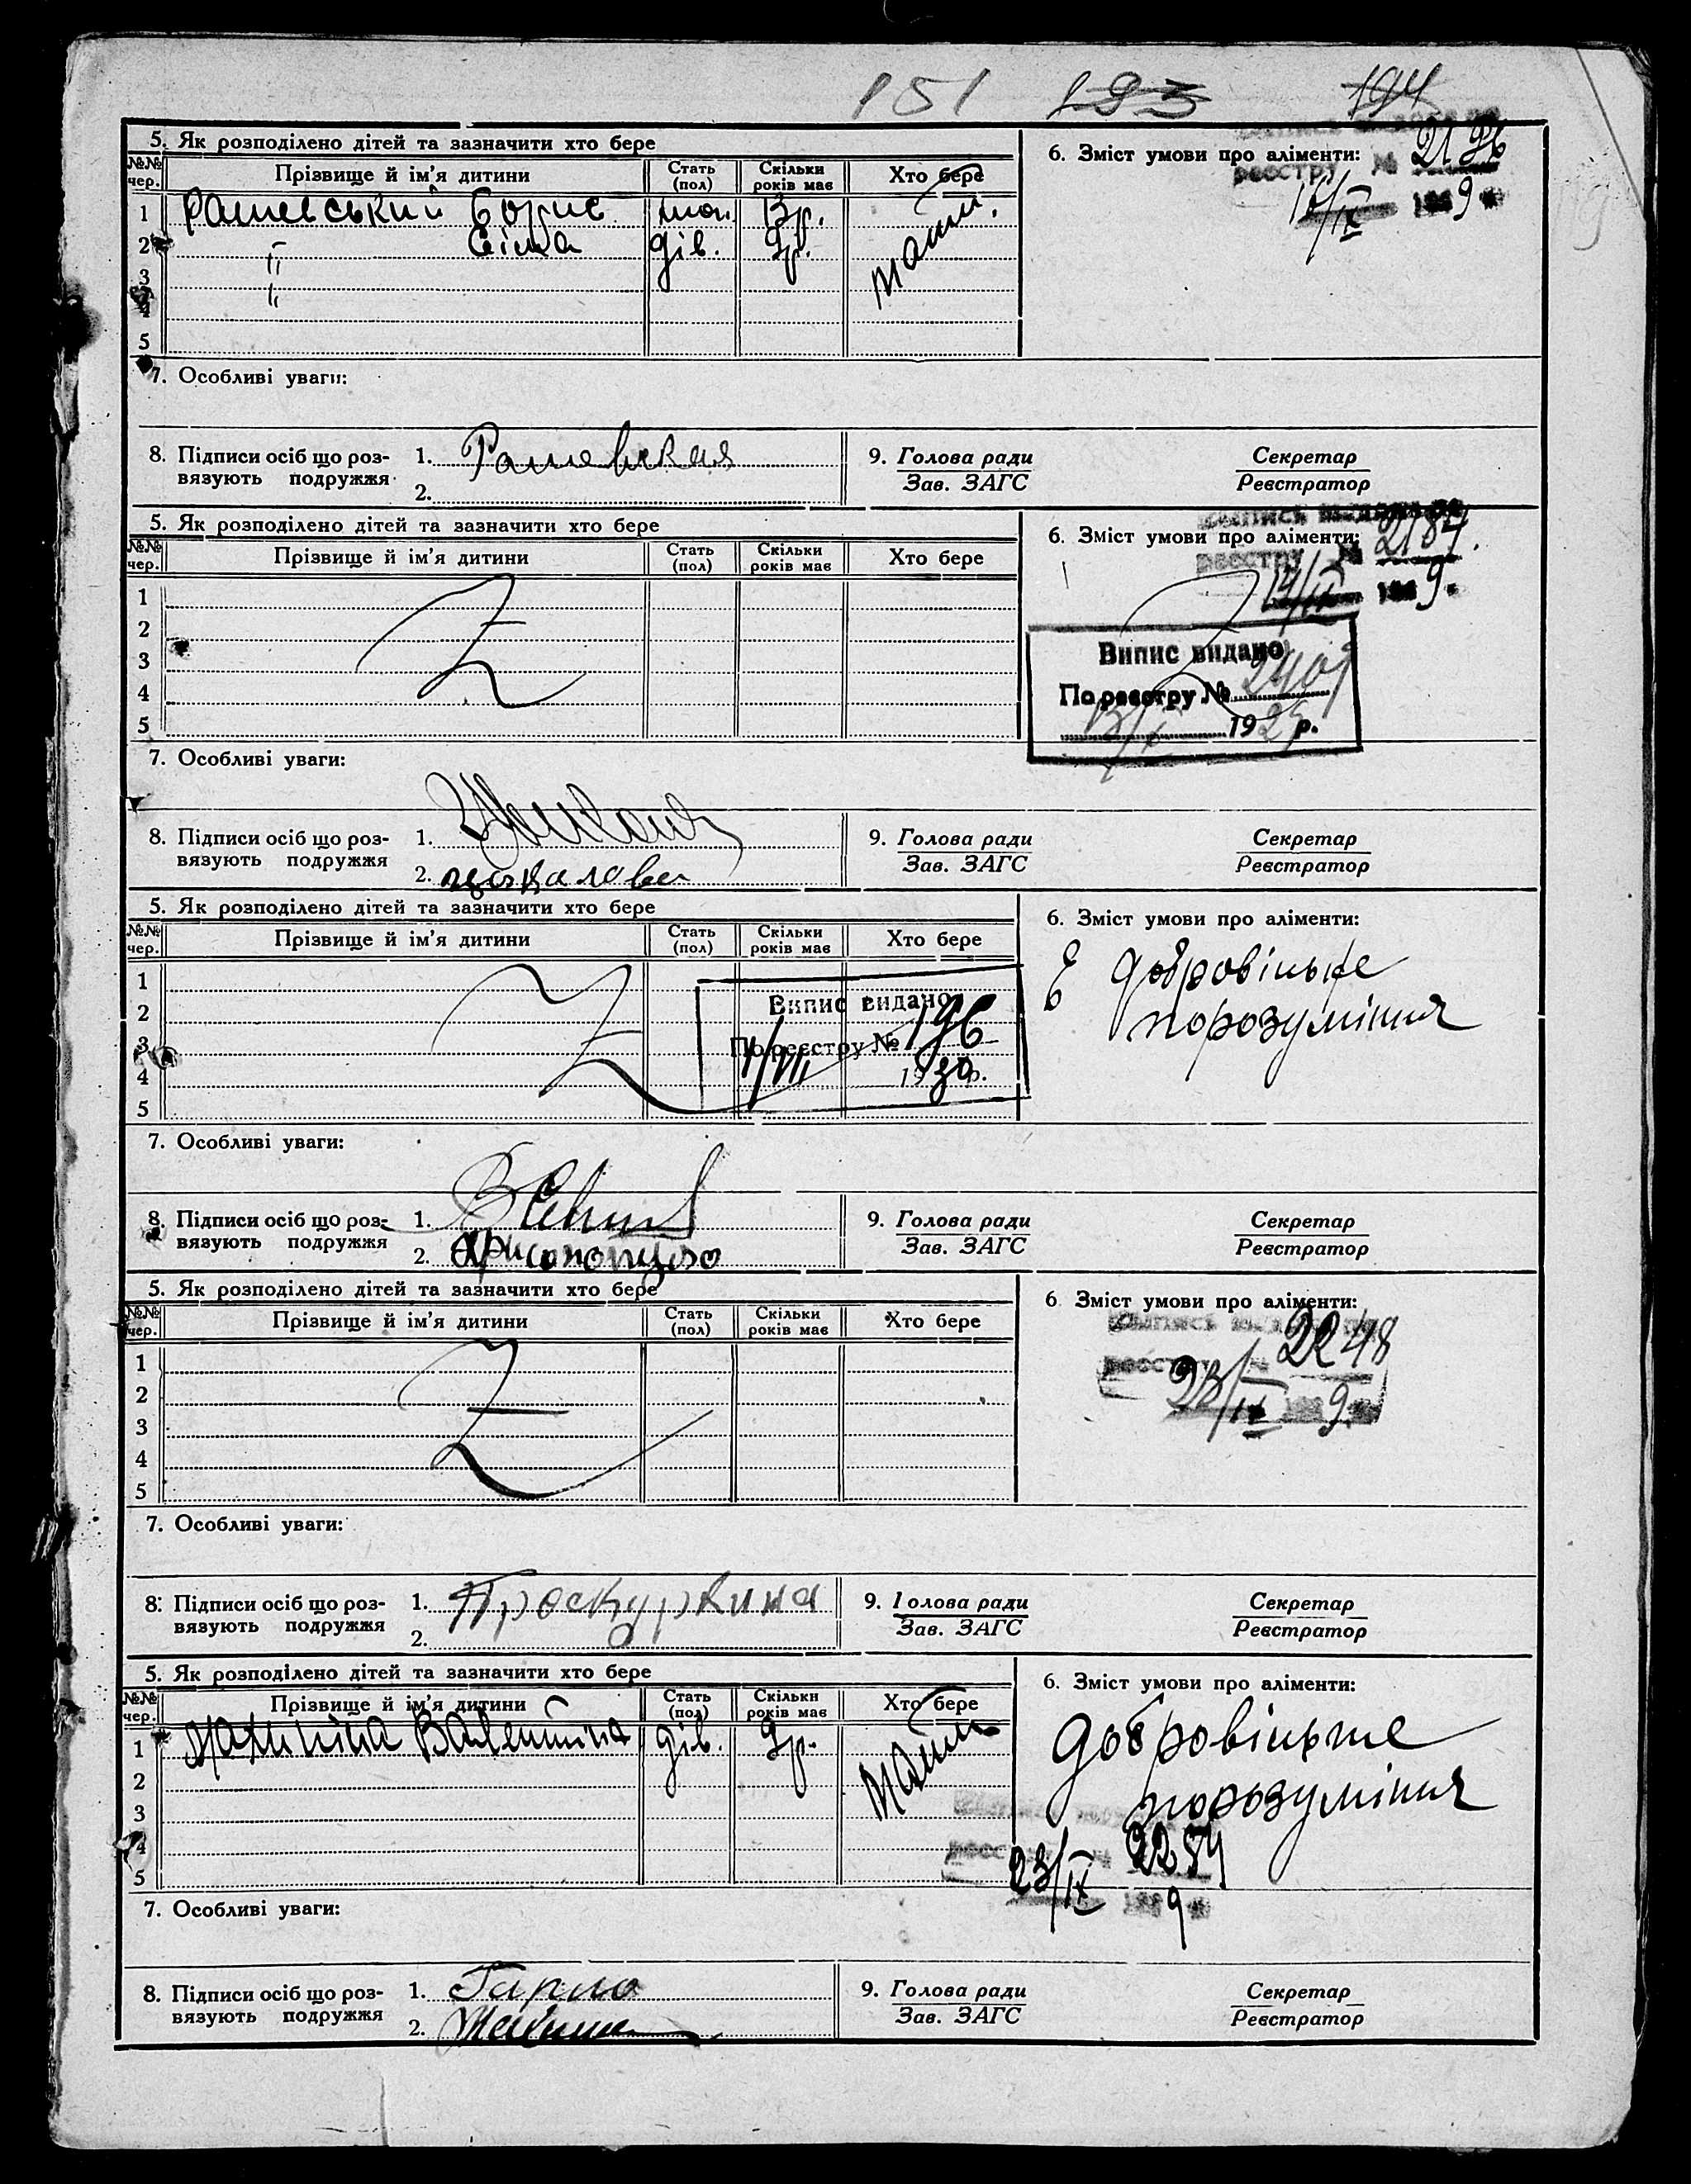 151 193 194
5. Як розподілено дітей та зазначити хто бере
№№ чер. Прізвище й ім'я дитини Стать (пол) Скільки років має Хто бере
6. Зміст умови про аліменти:
реєстру № 2196
9
1 Рашевський Борис 13р. мати
2 " Сіма дів. 9р.
3 "
4
5
7. Особливі уваги:
8. Підписи осіб що роз-
вязують подружжя
1. Рашевская
2.
9. Голова ради
Зав. ЗАГС
Секретар
Реєстратор
5. Як розподілено дітей та зазначити хто бере
№№ чер. Прізвище й ім'я дитини Стать (пол) Скільки років має Хто бере
6. Зміст умови про аліменти:
реєстру № 2187
14/IX 9
1
2
3
4
5
Випис видано
По реєстру №
19 р.
7. Особливі уваги:
8. Підписи осіб що роз-
вязують подружжя
1.
2.
9. Голова ради
Зав. ЗАГС
Секретар
Реєстратор
5. Як розподілено дітей та зазначити хто бере
№№ чер. Прізвище й ім'я дитини Стать (пол) Скільки років має Хто бере
6. Зміст умови про аліменти:
Є добровільне
порозуміння
1
2
3
4
5
Випис видано
По реєстру № 196
1930 р.
7. Особливі уваги:
8. Підписи осіб що роз-
вязують подружжя
1.
2.
9. Голова ради
Зав. ЗАГС
Секретар
Реєстратор
5. Як розподілено дітей та зазначити хто бере
№№ чер. Прізвище й ім'я дитини Стать (пол) Скільки років має Хто бере
6 Зміст умови про аліменти:
2248
23/IX 9
1
2
3
4
5
7. Особливі уваги:
8. Підписи осіб що роз-
вязують подружжя
1. Проскуркина
2.
9. Голова ради
Зав. ЗАГС
Секретар
Реєстратор
5. Як розподілено дітей та зазначити хто бере
№№ чер. Прізвище й ім'я дитини Стать (пол) Скільки років має Хто бере
6. Зміст умови про аліменти:
Добровільне
порозуміння
1 Валентина дів. 9р. мати
2
3
4
5
23/IX 2254
9
7. Особливі уваги:
8. Підписи осіб що роз-
вязують подружжя
1.
2.
9. Голова ради
Зав. ЗАГС
Секретар
Реєстратор